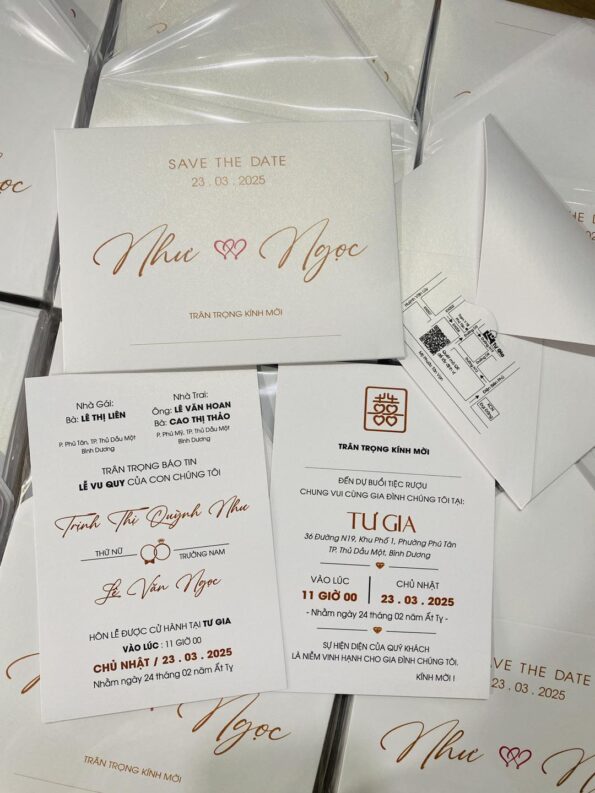 SAVE THE DATE
23 . 03 . 2025
Như Ngọc
TRÂN TRỌNG KÍNH MỜI
Nhà Gái:
Bà: LÊ THỊ LIÊN
P. Phú Tân, TP. Thủ Dầu Một
Bình Dương
Nhà Trai:
Ông: LÊ VĂN HOAN
Bà: CAO THỊ THẢO
P. Phú Mỹ, TP. Thủ Dầu Một
Bình Dương
TRÂN TRỌNG BÁO TIN
LỄ VU QUY CỦA CON CHÚNG TÔI
Trịnh Thị Quỳnh Như
THỨ NỮ
TRƯỞNG NAM
Lê Văn Ngọc
HÔN LỄ ĐƯỢC CỬ HÀNH TẠI TƯ GIA
VÀO LÚC : 11 GIỜ 00
CHỦ NHẬT / 23 . 03 . 2025
Nhằm ngày 24 tháng 02 năm Ất Tỵ
TRÂN TRỌNG KÍNH MỜI
ĐẾN DỰ BUỔI TIỆC RƯỢU
CHUNG VUI CÙNG GIA ĐÌNH CHÚNG TÔI TẠI:
TƯ GIA
36 Đường N19, Khu Phố 1, Phường Phú Tân
TP. Thủ Dầu Một, Bình Dương
VÀO LÚC
11 GIỜ 00
CHỦ NHẬT
23 . 03 . 2025
- Nhằm ngày 24 tháng 02 năm Ất Tỵ -
SỰ HIỆN DIỆN CỦA QUÝ KHÁCH
LÀ NIỀM VINH HẠNH CHO GIA ĐÌNH CHÚNG TÔI.
KÍNH MỜI !
Huỳnh Văn Lũy
Quét mã QR
Mỹ Phước Tân Vạn
Tư gia
Điện Biên Phủ
Ngọc
TRÂN TRỌNG KÍNH MỜI
SAVE THE DATE
23 . 03 . 2025
Như
TRÂN TRỌNG KÍNH MỜI